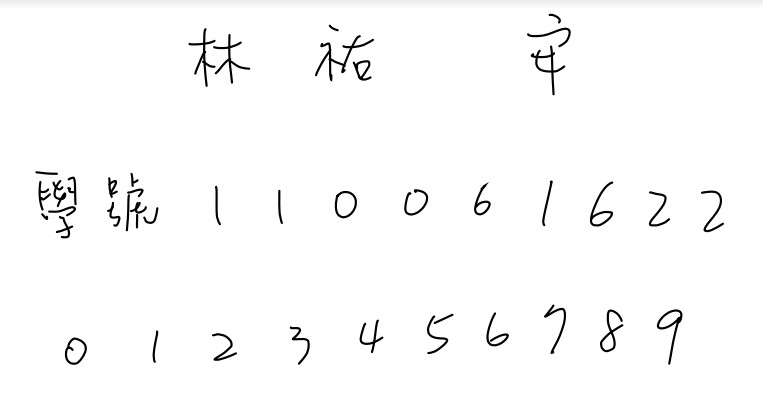 林祐安
學號 110061622
0123456789